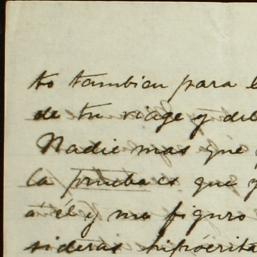 to tambien para
de tu viage y del
Nadie mas que
la prueba es que y
á él y me figuro
sideras hipócrita